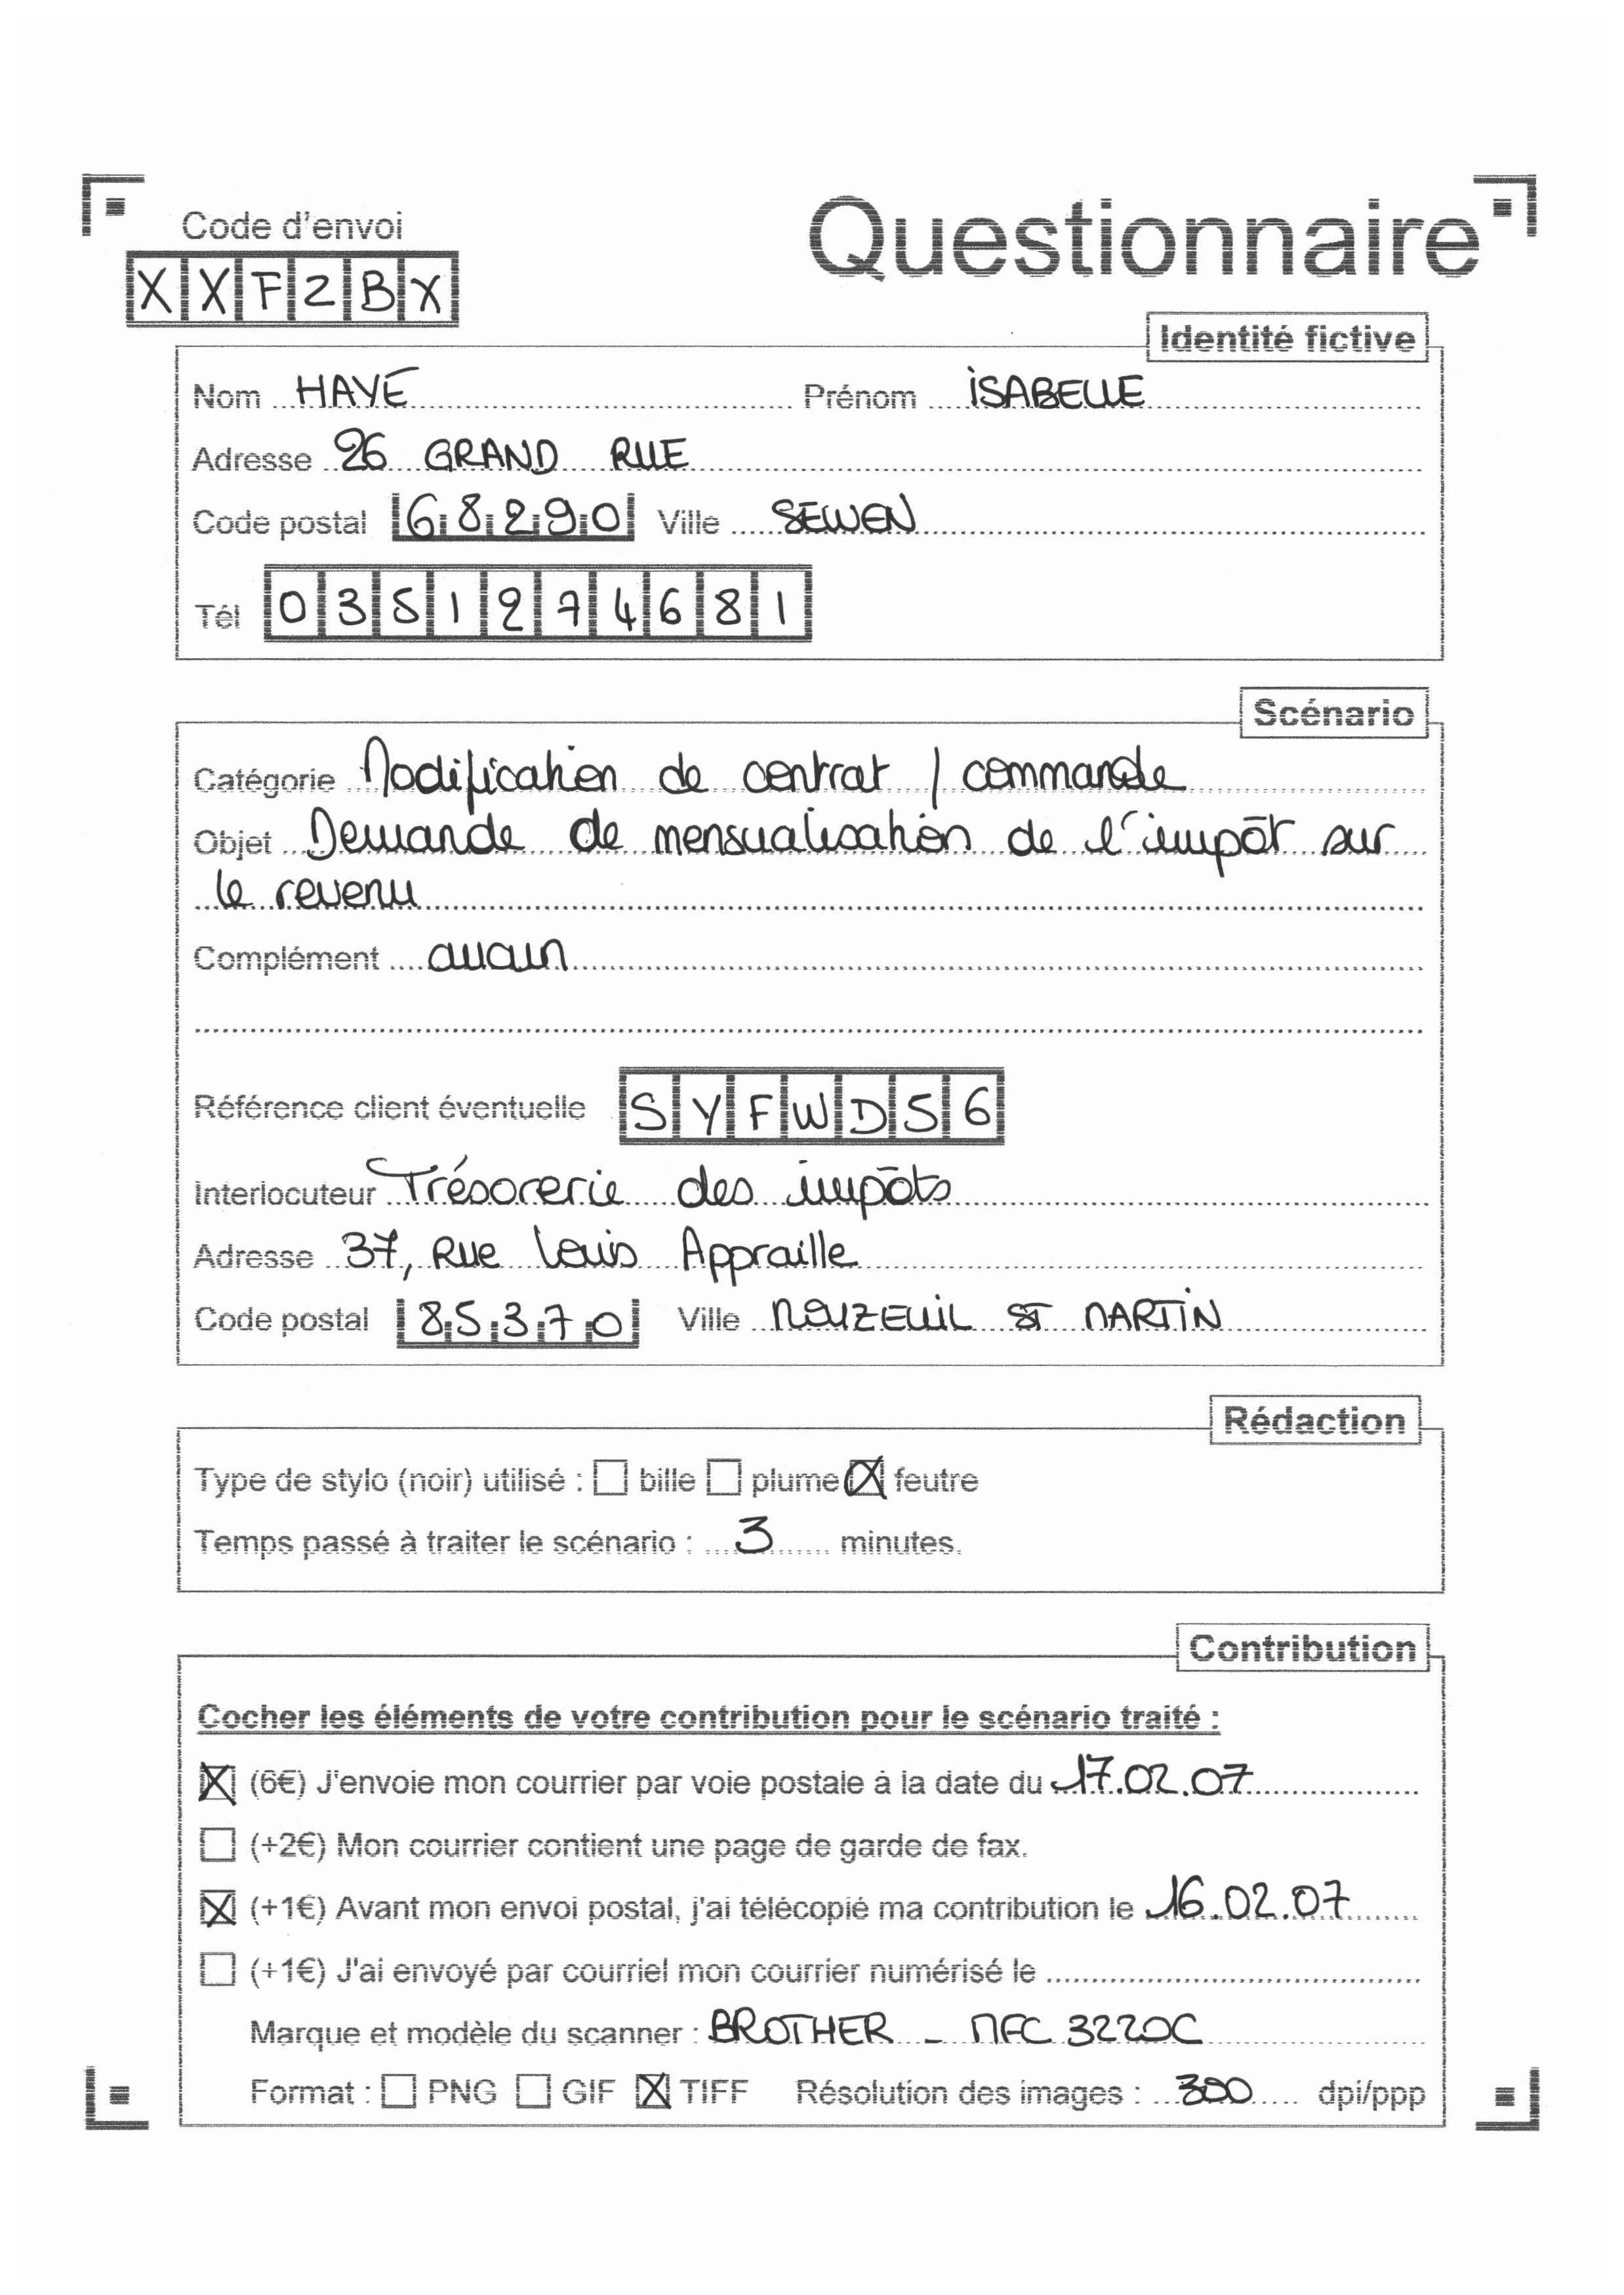 Code d'envoi
Questionnaire
XXFZBX
Identité fictive
Nom HAYÉ Prénom ISABELLE
Adresse 26 GRAND RUE
Code postal 68290 Ville SEWEN
Tél 0351274681
Scénario
Catégorie Modification de contrat / commande
Objet Demande de mensualisation de l'impôt sur
le revenu
Complément aucun
Référence client éventuelle SYFWDS6
Interlocuteur Trésorerie des impôts
Adresse 37, Rue Louis Appraille
Code postal 85370 Ville MOUZEUIL ST MARTIN
Rédaction
Type de stylo (noir) utilisé : ☐ bille ☐ plume ☒ feutre
Temps passé à traiter le scénario : 3 minutes.
Contribution
Cocher les éléments de votre contribution pour le scénario traité :
☒ (6€) J'envoie mon courrier par voie postale à la date du 17.02.07
☐ (+2€) Mon courrier contient une page de garde de fax.
☒ (+1€) Avant mon envoi postal, j'ai télécopié ma contribution le 16.02.07
☐ (+1€) J'ai envoyé par courriel mon courrier numérisé le
Marque et modèle du scanner : BROTHER - MFC 3220C
Format : ☐ PNG ☐ GIF ☒ TIFF Résolution des images : 300 dpi/ppp